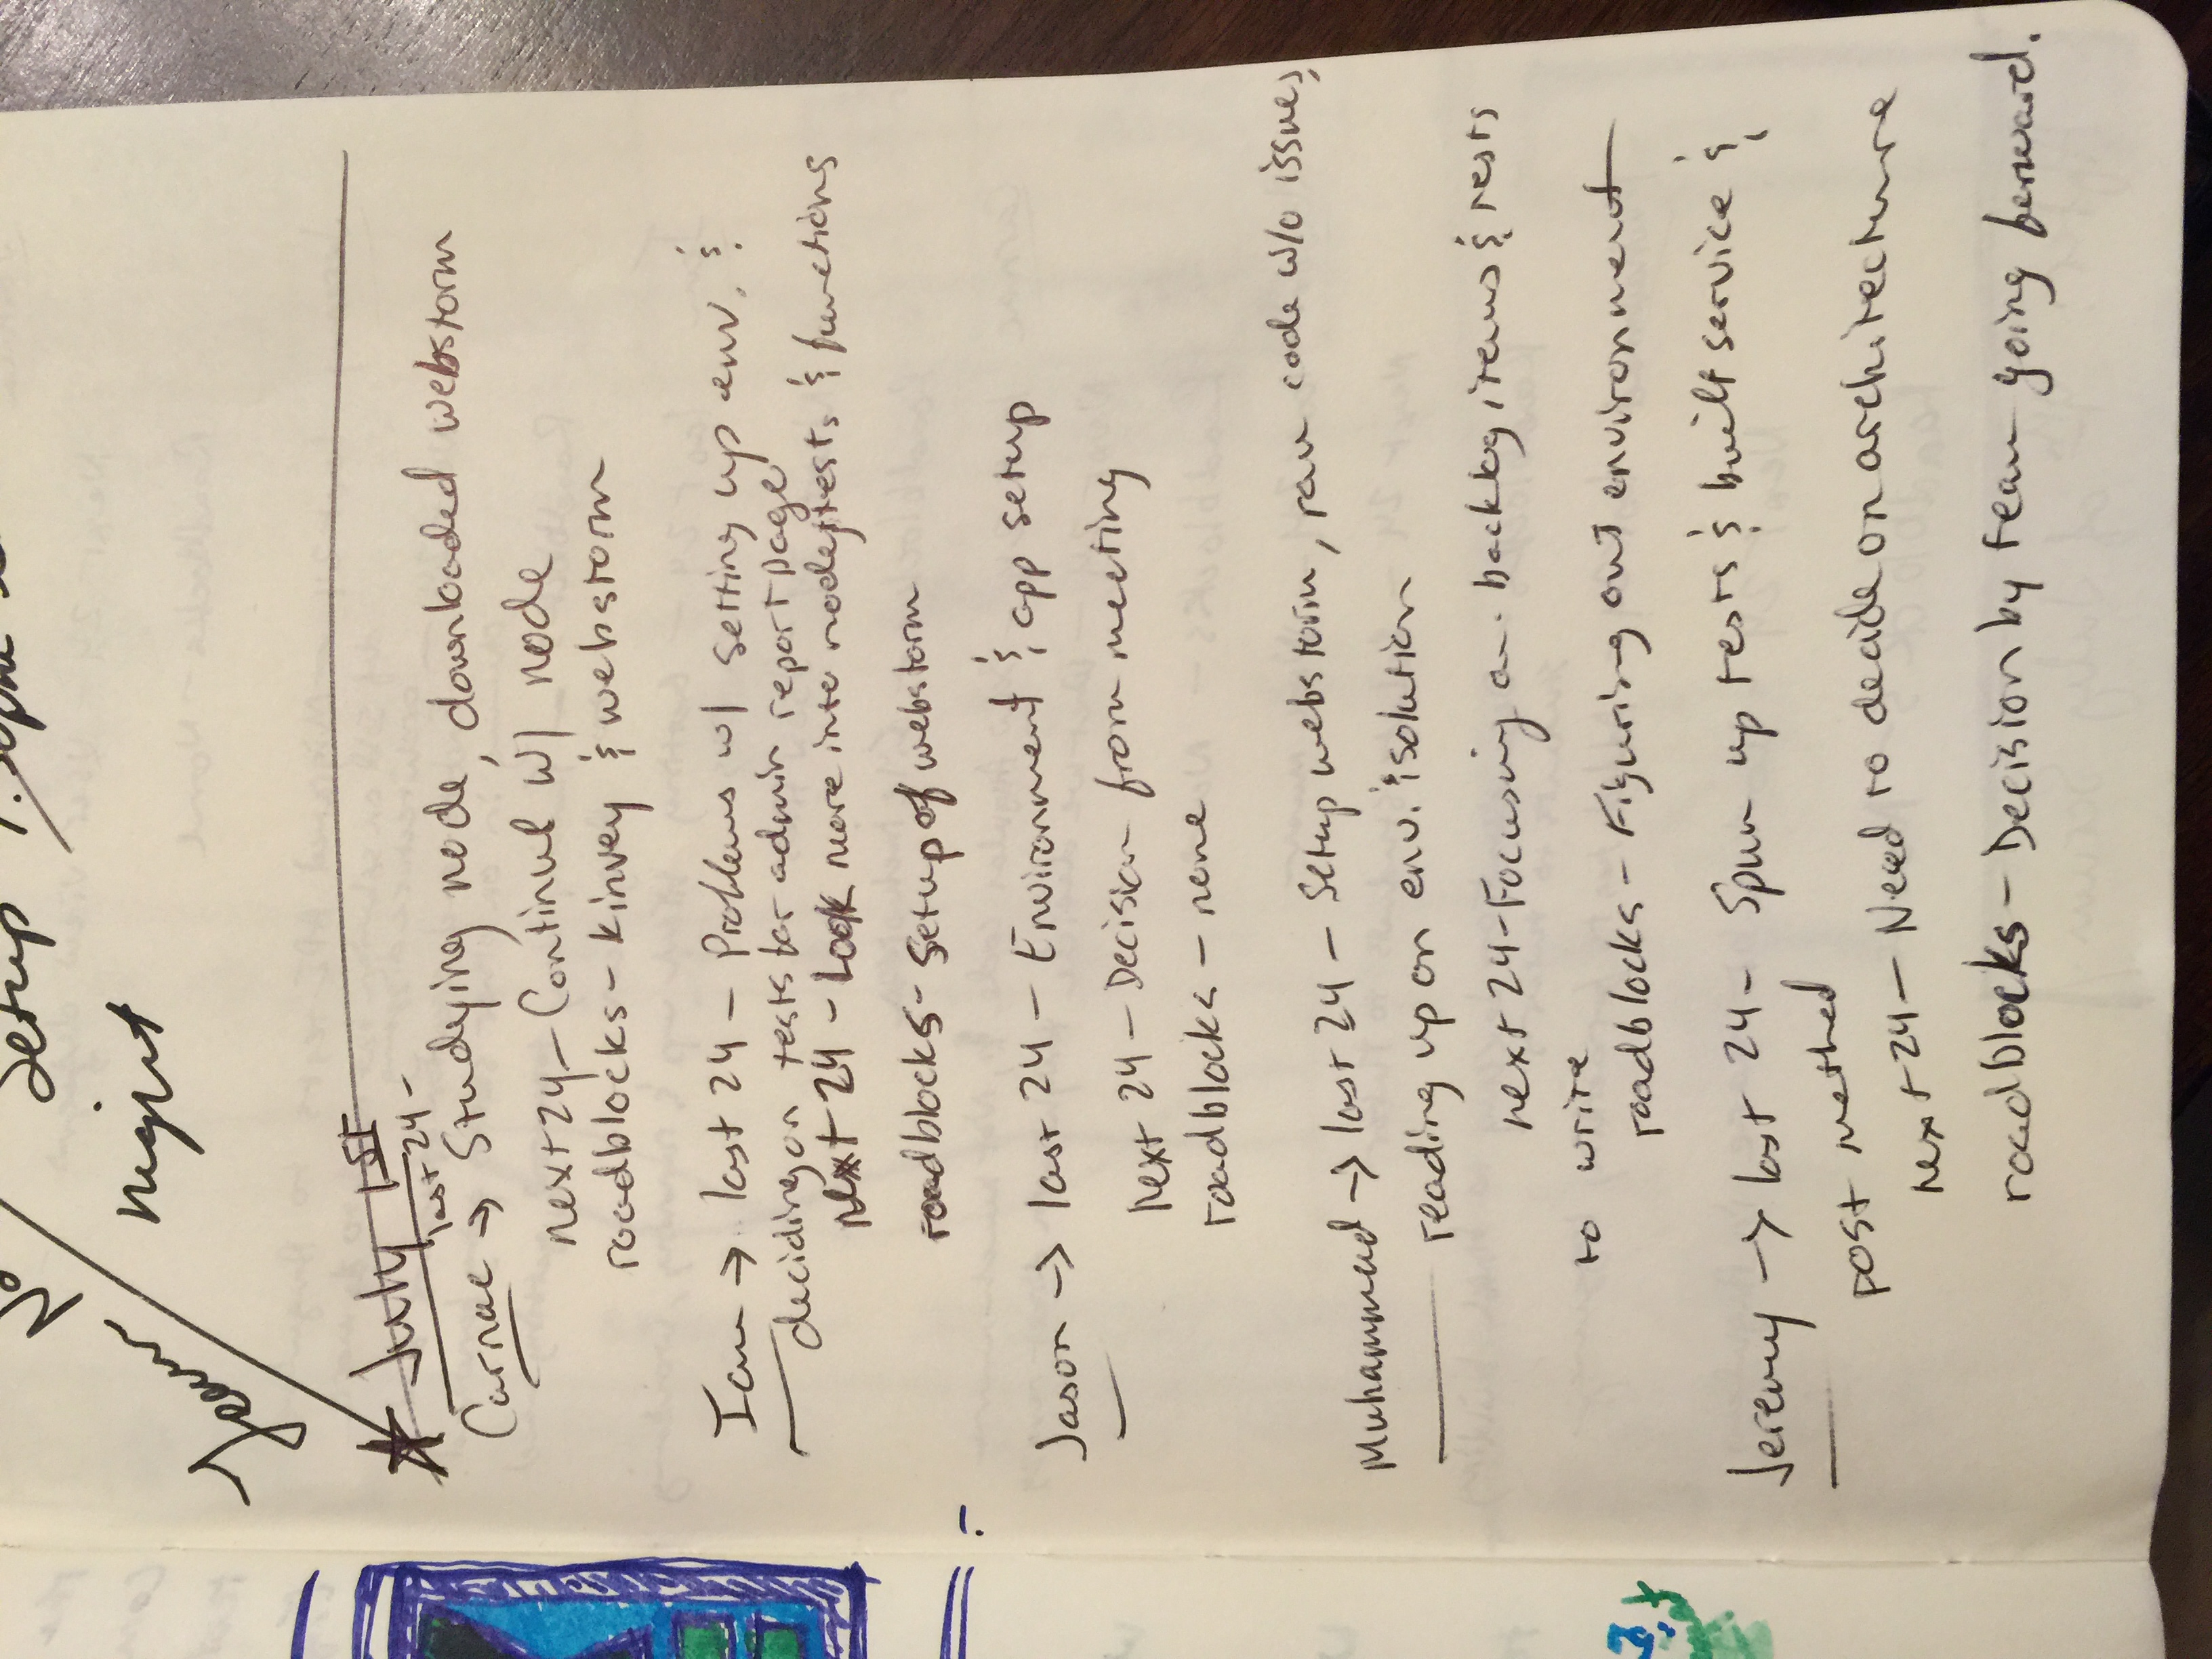 Setup
night
Team
July 1st
last 24 -
Carnac → Studying node, downloaded webstorm
next 24 - Continue w/ node
roadblocks - Kinvey & webstorm
Ian → last 24 - Problems w/ setting up env. &
deciding on tests for admin report page
next 24 - Look more into node, tests & functions
roadblocks - Setup of webstorm
Jason → last 24 - Environment & app setup
next 24 - Decision from meeting
roadblocks - none
Muhammad → last 24 - Setup webstorm, ran code w/o issues,
reading up on env. isolation
next 24 - Focusing on backlog items & tests
to write
roadblocks - Figuring out environment
Jeremy → last 24 - Spun up tests & built service &
post method
next 24 - Need to decide on architecture
roadblocks - Decision by team going forward.